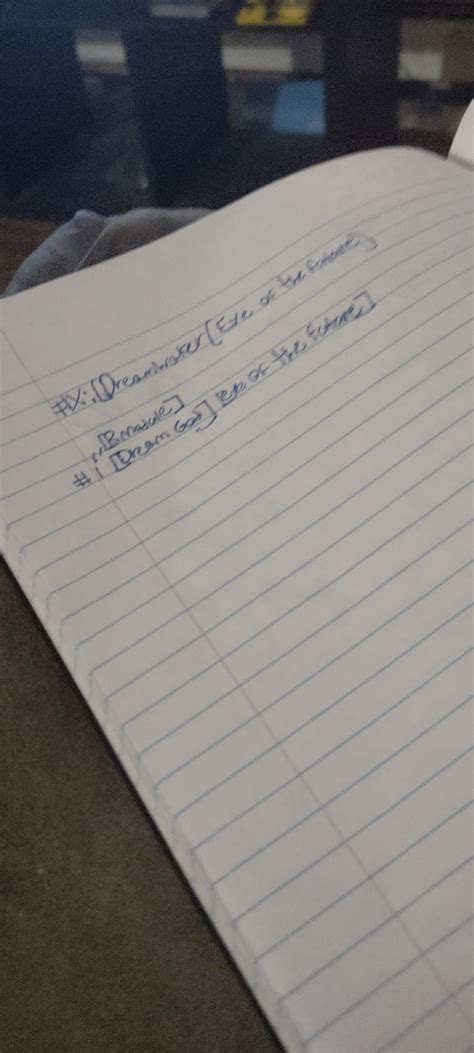 [Dreamwaker [Eye of the Future]
[Dream God] Eye of the Future]